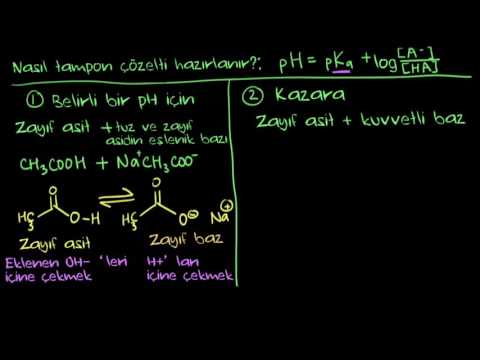 Nasıl tampon çözelti hazırlanır?: pH = pKa + log [A-]/[HA]
① Belirli bir pH için
Zayıf asit + tuz ve zayıf
asidin eşlenik bazı
CH₃COOH + Na⁺CH₃COO⁻
O
H₃Ç O-H
O
H₃Ç O⊖ Na⊕
Zayıf asit
Zayıf baz
Eklenen OH- 'leri
içine çekmek
H+' ları
içine çekmek
② Kazara
Zayıf asit + kuvvetli baz